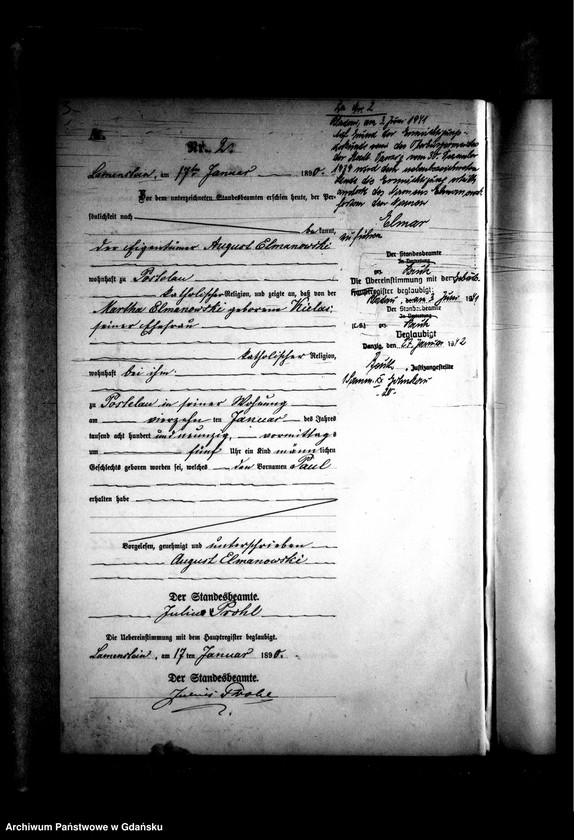 A.
Nr. 2
Lamenstein, am 17ten Januar 1890.
Vor dem unterzeichneten Standesbeamten erschien heute, der Per-
sönlichkeit nach
bekannt,
der Eigentümer August Elmanowski
wohnhaft zu Postelau
katholischer Religion, und zeigte an, daß von der
Martha Elmanowski geborene Kielas,
seiner Ehefrau
katholischer Religion,
wohnhaft bei ihm
zu Postelau in seiner Wohnung
am vierzehn ten Januar des Jahres
tausend acht hundert und neunzig, vormittags
um fünf Uhr ein Kind männlichen
Geschlechts geboren worden sei, welches den Vornamen Paul
erhalten habe
Vorgelesen, genehmigt und unterschrieben
August Elmanowski
Der Standesbeamte.
Julius Prohl
Die Uebereinstimmung mit dem Hauptregister beglaubigt.
Lamenstein, am 17 ten Januar 1890.
Der Standesbeamte.
Julius Prohl
Zu Nr. 2
am 3. Juni 1941
Auf Grund der Ermächtigungs-
des Oberbürgermeisters
der Stadt Danzig vom
1939 wird dem
des Namens Elmanowski
fortan den Namen
Elmar
zu führen
Der Standesbeamte
In Vertretung
gez.
Die Übereinstimmung mit dem Geburts-
register beglaubigt
, den 3. Juni 1941
Der Standesbeamte
In Vertretung
(L.S.) gez.
Beglaubigt
Danzig, den 27. Januar 1942
, Justizangestellte
Archiwum Państwowe w Gdańsku